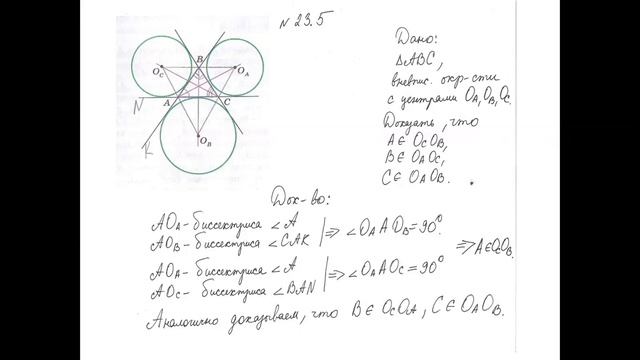 N 23.5
Дано:
△ABC,
внепис. окр-сти
с центрами O_A, O_B, O_C.
Доказать, что
A ∈ O_C O_B,
B ∈ O_A O_C,
C ∈ O_A O_B.
O_C
B
O_A
N
A
C
K
O_B
Док-во:
AO_A - биссектриса ∠A
AO_B - биссектриса ∠CAK
⇒ ∠O_A A O_B = 90°
AO_A - биссектриса ∠A
AO_C - биссектриса ∠BAN
⇒ ∠O_A A O_C = 90°
⇒ A ∈ O_C O_B.
Аналогично доказываем, что B ∈ O_C O_A, C ∈ O_A O_B.